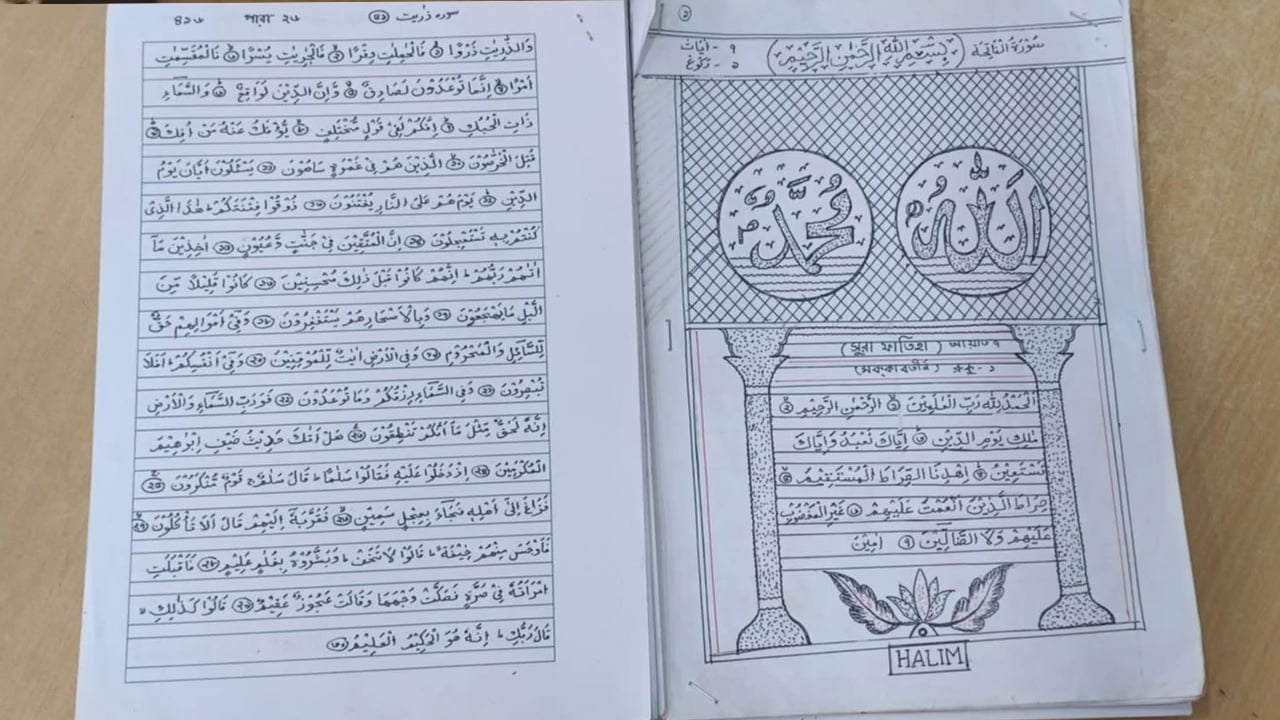 ৪৯৬ পারা ২৬ ৫১ سورہ ذٰریت
وَالذّٰرِيٰتِ ذَرْوًا ১ فَالْحٰمِلٰتِ وِقْرًا ২ فَالْجٰرِيٰتِ يُسْرًا ৩ فَالْمُقَسِّمٰتِ
اَمْرًا ৪ اِنَّمَا تُوْعَدُوْنَ لَصَادِقٌ ৫ وَّاِنَّ الدِّيْنَ لَوَاقِعٌ ৬ وَالسَّمَآءِ
ذَاتِ الْحُبُكِ ৭ اِنَّكُمْ لَفِىْ قَوْلٍ مُّخْتَلِفٍ ৮ يُّؤْفَكُ عَنْهُ مَنْ اُفِكَ ৯
قُتِلَ الْخَرّٰصُوْنَ ১০ الَّذِيْنَ هُمْ فِىْ غَمْرَةٍ سَاهُوْنَ ১১ يَسْئَلُوْنَ اَيَّانَ يَوْمُ
الدِّيْنِ ১২ يَوْمَ هُمْ عَلَى النَّارِ يُفْتَنُوْنَ ১৩ ذُوْقُوْا فِتْنَتَكُمْ هٰذَا الَّذِىْ
كُنْتُمْ بِهٖ تَسْتَعْجِلُوْنَ ১৪ اِنَّ الْمُتَّقِيْنَ فِىْ جَنّٰتٍ وَّعُيُوْنٍ ১৫ اٰخِذِيْنَ مَآ
اٰتٰهُمْ رَبُّهُمْ اِنَّهُمْ كَانُوْا قَبْلَ ذٰلِكَ مُحْسِنِيْنَ ১৬ كَانُوْا قَلِيْلًا مِّنَ
الَّيْلِ مَا يَهْجَعُوْنَ ১৭ وَبِالْاَسْحَارِ هُمْ يَسْتَغْفِرُوْنَ ১৮ وَفِىْٓ اَمْوَالِهِمْ حَقٌّ
لِّلسَّآئِلِ وَالْمَحْرُوْمِ ১৯ وَفِى الْاَرْضِ اٰيٰتٌ لِّلْمُوْقِنِيْنَ ২০ وَفِىْٓ اَنْفُسِكُمْ اَفَلَا
تُبْصِرُوْنَ ২১ وَفِى السَّمَآءِ رِزْقُكُمْ وَمَا تُوْعَدُوْنَ ২২ فَوَرَبِّ السَّمَآءِ وَالْاَرْضِ
اِنَّهٗ لَحَقٌّ مِّثْلَ مَآ اَنَّكُمْ تَنْطِقُوْنَ ২৩ هَلْ اَتٰكَ حَدِيْثُ ضَيْفِ اِبْرٰهِيْمَ
الْمُكْرَمِيْنَ ২৪ اِذْ دَخَلُوْا عَلَيْهِ فَقَالُوْا سَلٰمًا قَالَ سَلٰمٌ قَوْمٌ مُّنْكَرُوْنَ ২৫
فَرَاغَ اِلٰٓى اَهْلِهٖ فَجَآءَ بِعِجْلٍ سَمِيْنٍ ২৬ فَقَرَّبَهٗٓ اِلَيْهِمْ قَالَ اَلَا تَأْكُلُوْنَ ২৭
فَاَوْجَسَ مِنْهُمْ خِيْفَةً قَالُوْا لَا تَخَفْ وَبَشَّرُوْهُ بِغُلٰمٍ عَلِيْمٍ ২৮ فَاَقْبَلَتِ
امْرَاَتُهٗ فِىْ صَرَّةٍ فَصَكَّتْ وَجْهَهَا وَقَالَتْ عَجُوْزٌ عَقِيْمٌ ২৯ قَالُوْا كَذٰلِكِ
قَالَ رَبُّكِ اِنَّهٗ هُوَ الْحَكِيْمُ الْعَلِيْمُ ৩০
১
سُوْرَةُ الْفَاتِحَة بِسْمِ اللهِ الرَّحْمٰنِ الرَّحِيْمِ ৭ - اٰيَات
১ - رُكُوْع
اَللهُ مُحَمَّدٌ
(সূরা ফাতিহা) আয়াত ৭
(মক্কাবতীর্ন) রুকু - ১
اَلْحَمْدُ لِلّٰهِ رَبِّ الْعٰلَمِيْنَ ১ الرَّحْمٰنِ الرَّحِيْمِ ২
مٰلِكِ يَوْمِ الدِّيْنِ ৩ اِيَّاكَ نَعْبُدُ وَاِيَّاكَ
نَسْتَعِيْنُ ৪ اِهْدِنَا الصِّرَاطَ الْمُسْتَقِيْمَ ৫
صِرَاطَ الَّذِيْنَ اَنْعَمْتَ عَلَيْهِمْ ৬ غَيْرِ الْمَغْضُوْبِ
عَلَيْهِمْ وَلَا الضَّآلِّيْنَ ৭ اٰمِيْنَ
HALIM